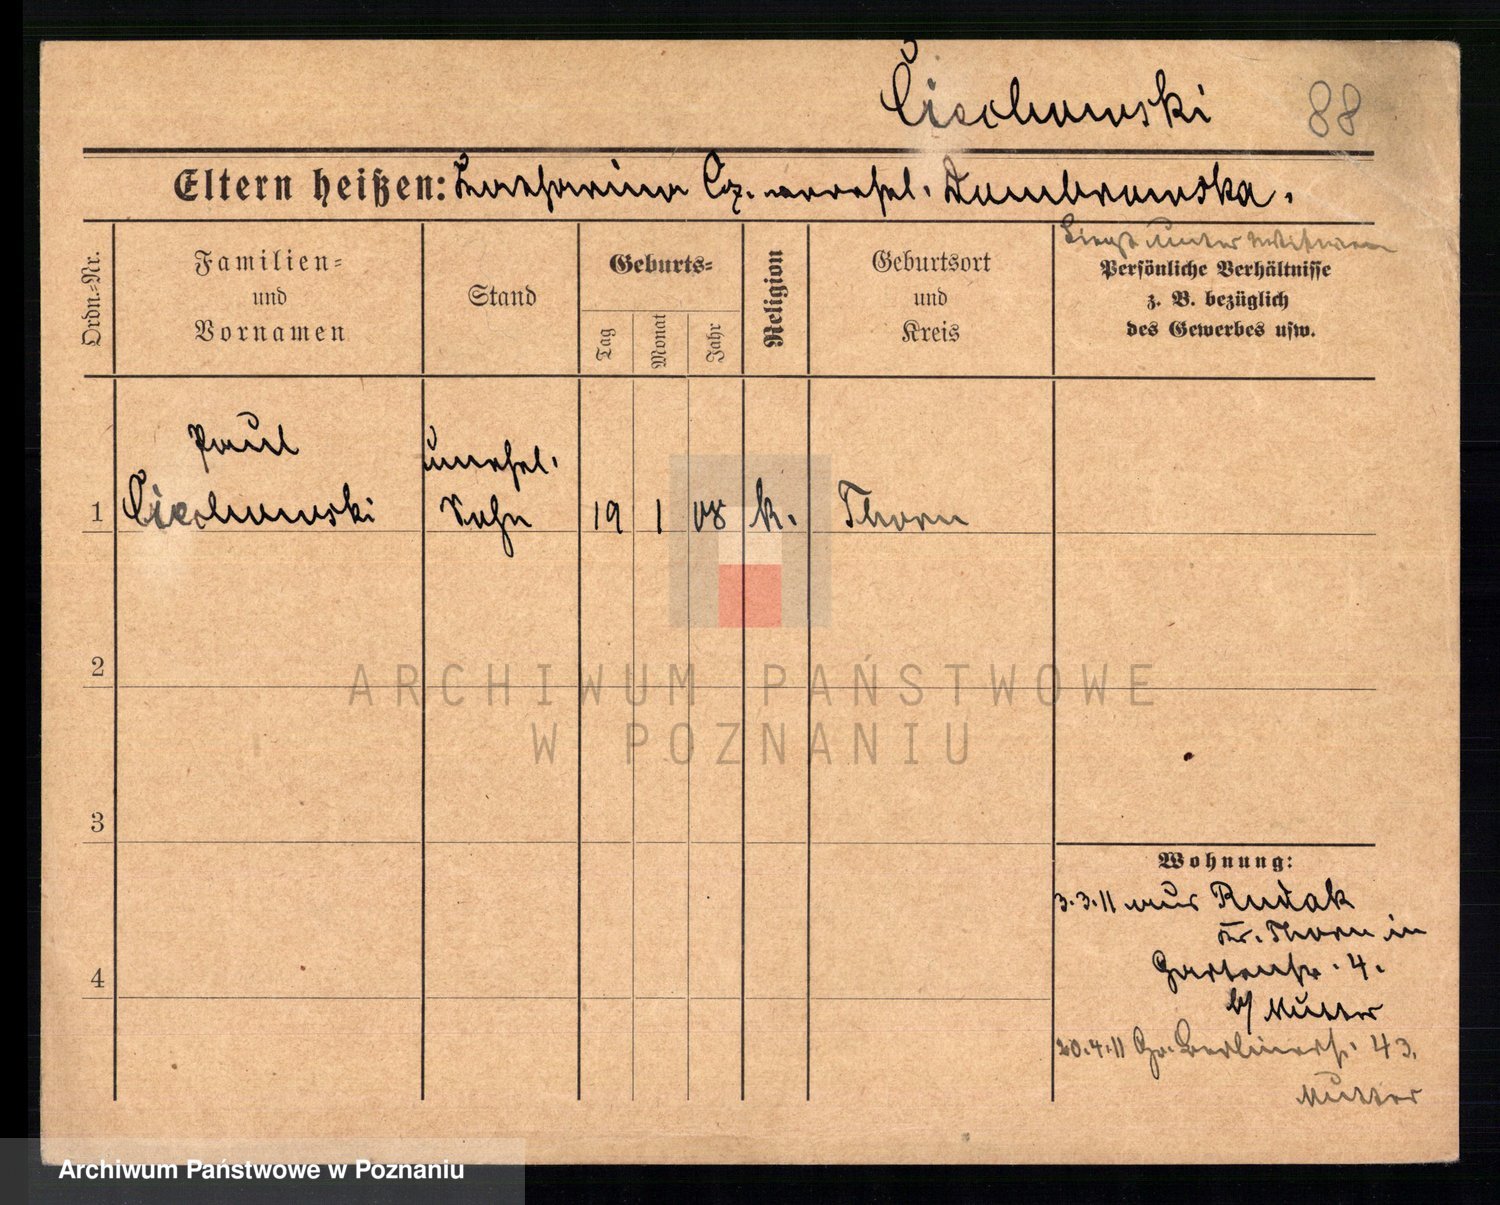 Ciechowski 88
Eltern heißen: Katharina Cz. verehel. Dombrowska.
Liegt unter
Ordn.-Nr.
Familien- und Vornamen
Stand
Geburts-
Tag
Monat
Jahr
Religion
Geburtsort und Kreis
Persönliche Verhältnisse
z. B. bezüglich
des Gewerbes usw.
Paul unehel.
1 Ciechowski Sohn 19 1 08 k. Thorn
2
ARCHIWUM PAŃSTWOWE
W POZNANIU
3
Wohnung:
3.3.11 aus Rudak
Kr. Thorn in
Gartenstr. 4.
b/ Mutter
4
20.4.11 Gr. Berlinerstr. 43.
Mutter
Archiwum Państwowe w Poznaniu